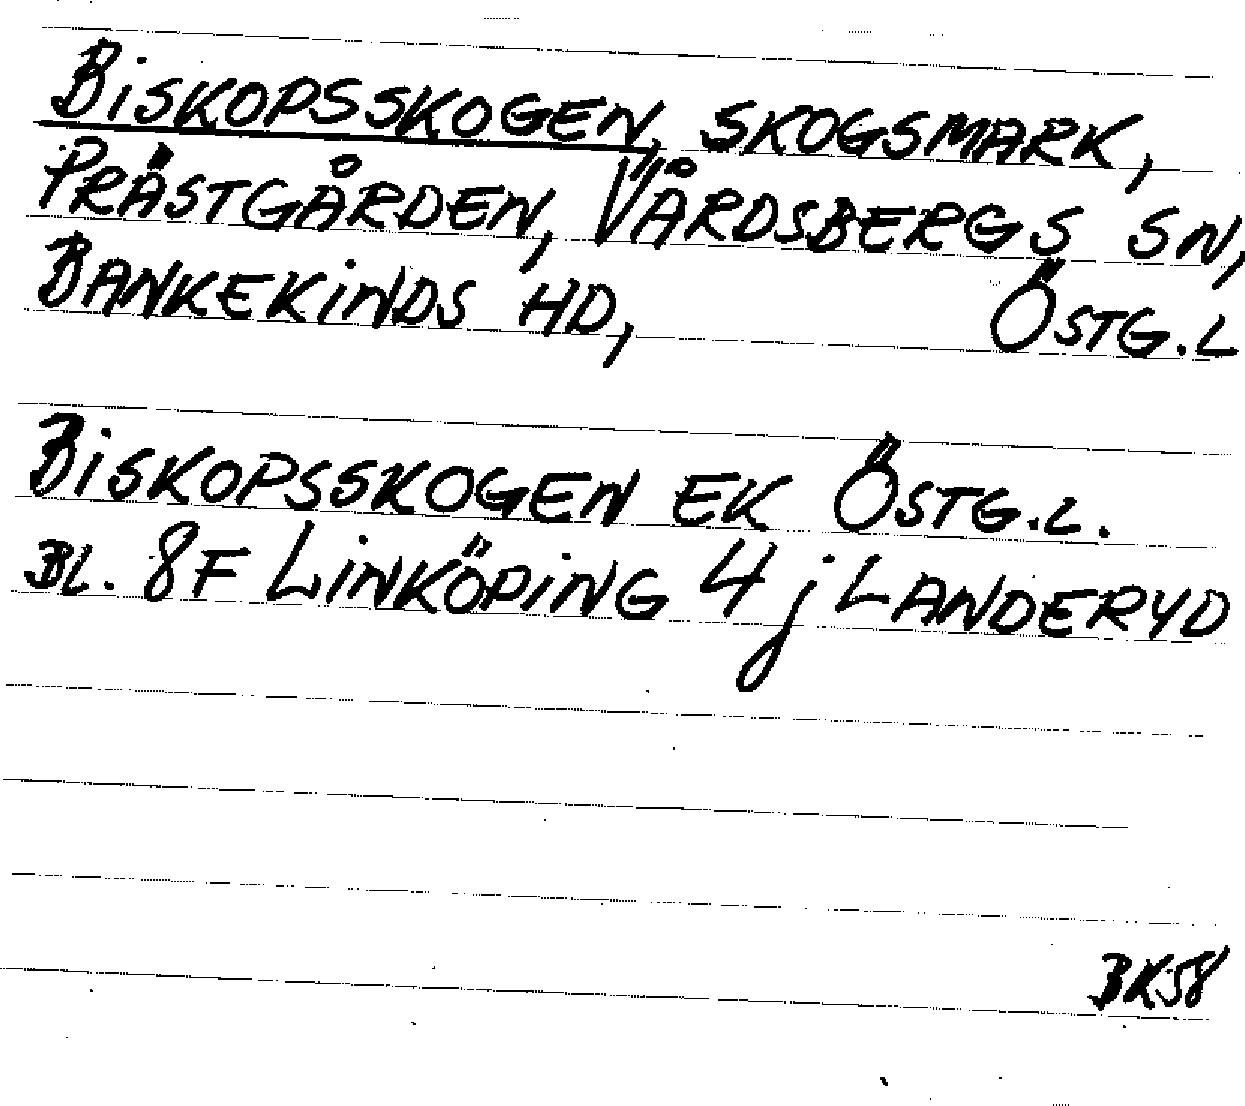 BiSKOPSSKOGEN, SKOGSMARK,
PRÄSTGÅRDEN, VÅRDSBERGS SN,
BANKEKiNDS HD, ÖSTG.L
BiSKOPSSKOGEN EK ÖSTG.L.
BL. 8F LiNKÖPiNG 4j LANDERYD
BK58